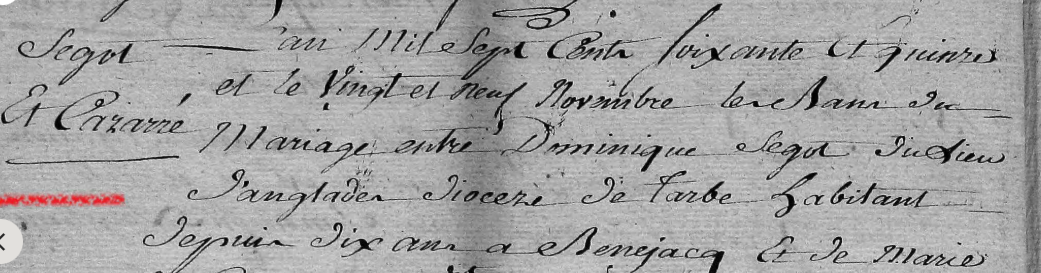 Segot
Et Cazarré
L'an Mil Sept Cents soixante Et quinze
et le Vingt et neuf Novembre les Bans du
Mariage entre Dominique Segot du Lieu
D'anglades dioceze de Tarbe habitant
depuis dix ans a Benejacq Et de Marie